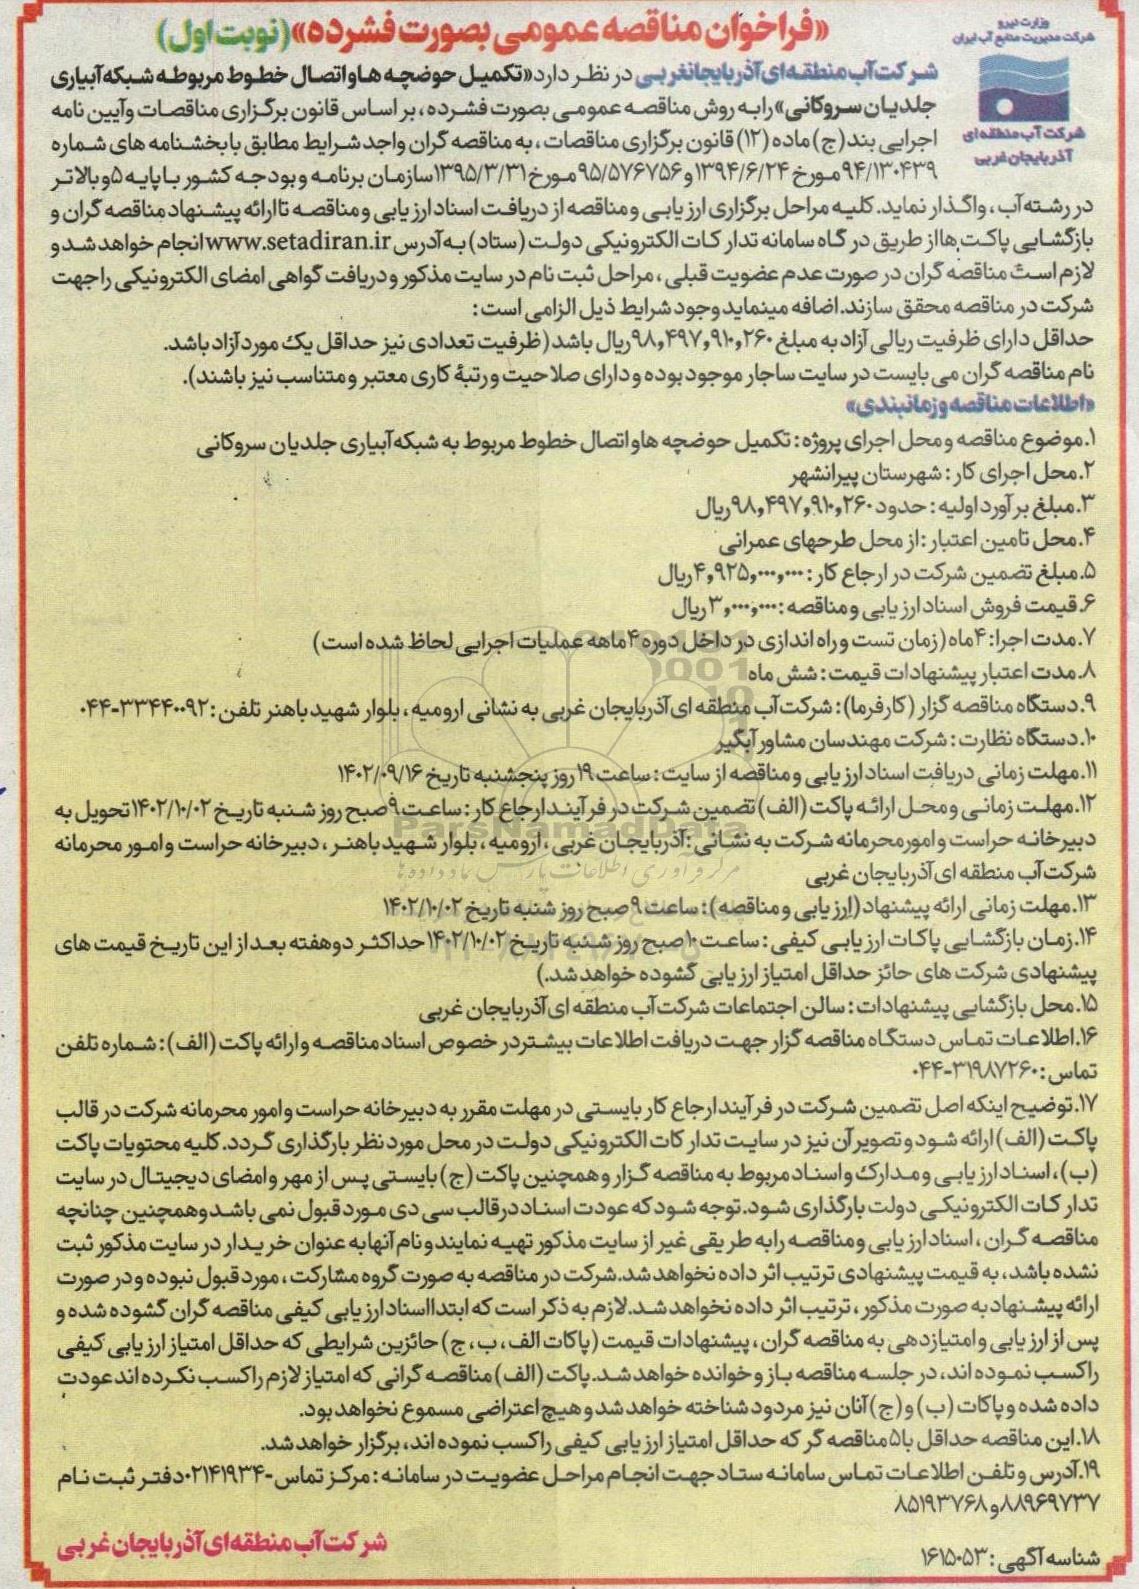 «فراخوان مناقصه عمومی بصورت فشرده»(نوبت اول)
وزارت نیرو
شرکت مدیریت منابع آب ایران
شرکت آب منطقه ای
آذربایجان غربی
شرکت آب منطقه ای آذربایجانغربی در نظر دارد «تکمیل حوضچه ها و اتصال خطوط مربوطه شبکه آبیاری
جلدیان سروکانی» را به روش مناقصه عمومی بصورت فشرده، بر اساس قانون برگزاری مناقصات و آیین نامه
اجرایی بند (ج) ماده (۱۲) قانون برگزاری مناقصات، به مناقصه گران واجد شرایط مطابق با بخشنامه های شماره
۹۴/۱۳۰۴۳۹ مورخ ۱۳۹۴/۶/۲۴ و ۹۵/۵۷۶۷۵۶ مورخ ۱۳۹۵/۳/۳۱ سازمان برنامه و بودجه کشور با پایه ۵ و بالاتر
در رشته آب، واگذار نماید. کلیه مراحل برگزاری ارزیابی و مناقصه از دریافت اسناد ارزیابی و مناقصه تا ارائه پیشنهاد مناقصه گران و
بازگشایی پاکت ها از طریق درگاه سامانه تدارکات الکترونیکی دولت (ستاد) به آدرس www.setadiran.ir انجام خواهد شد و
لازم است مناقصه گران در صورت عدم عضویت قبلی، مراحل ثبت نام در سایت مذکور و دریافت گواهی امضای الکترونیکی را جهت
شرکت در مناقصه محقق سازند. اضافه مینماید وجود شرایط ذیل الزامی است:
حداقل دارای ظرفیت ریالی آزاد به مبلغ ۹۸,۴۹۷,۹۱۰,۲۶۰ ریال باشد (ظرفیت تعدادی نیز حداقل یک مورد آزاد باشد.
نام مناقصه گران می بایست در سایت ساجار موجود بوده و دارای صلاحیت و رتبهٔ کاری معتبر و متناسب نیز باشند).
«اطلاعات مناقصه و زمانبندی»
۱.موضوع مناقصه و محل اجرای پروژه: تکمیل حوضچه ها و اتصال خطوط مربوط به شبکه آبیاری جلدیان سروکانی
۲.محل اجرای کار: شهرستان پیرانشهر
۳.مبلغ برآورد اولیه: حدود ۹۸,۴۹۷,۹۱۰,۲۶۰ ریال
۴.محل تامین اعتبار: از محل طرحهای عمرانی
۵.مبلغ تضمین شرکت در ارجاع کار: ۴,۹۲۵,۰۰۰,۰۰۰ ریال
۶.قیمت فروش اسناد ارزیابی و مناقصه: ۳,۰۰۰,۰۰۰ ریال
۷.مدت اجرا: ۴ ماه (زمان تست و راه اندازی در داخل دوره ۴ ماهه عملیات اجرایی لحاظ شده است)
۸.مدت اعتبار پیشنهادات قیمت: شش ماه
۹.دستگاه مناقصه گزار (کارفرما): شرکت آب منطقه ای آذربایجان غربی به نشانی ارومیه، بلوار شهید باهنر تلفن: ۳۳۴۴۰۰۹۲-۰۴۴
۱۰.دستگاه نظارت: شرکت مهندسان مشاور آبگیر
۱۱.مهلت زمانی دریافت اسناد ارزیابی و مناقصه از سایت: ساعت ۱۹ روز پنجشنبه تاریخ ۱۴۰۲/۰۹/۱۶
۱۲.مهلت زمانی و محل ارائه پاکت (الف) تضمین شرکت در فرآیند ارجاع کار: ساعت ۹ صبح روز شنبه تاریخ ۱۴۰۲/۱۰/۰۲ تحویل به
دبیرخانه حراست و امور محرمانه شرکت به نشانی: آذربایجان غربی، ارومیه، بلوار شهید باهنر، دبیرخانه حراست و امور محرمانه
شرکت آب منطقه ای آذربایجان غربی
۱۳.مهلت زمانی ارائه پیشنهاد (ارزیابی و مناقصه): ساعت ۹ صبح روز شنبه تاریخ ۱۴۰۲/۱۰/۰۲
۱۴.زمان بازگشایی پاکات ارزیابی کیفی: ساعت ۱۰ صبح روز شنبه تاریخ ۱۴۰۲/۱۰/۰۲ حداکثر دوهفته بعد از این تاریخ قیمت های
پیشنهادی شرکت های حائز حداقل امتیاز ارزیابی گشوده خواهد شد.)
۱۵.محل بازگشایی پیشنهادات: سالن اجتماعات شرکت آب منطقه ای آذربایجان غربی
۱۶.اطلاعات تماس دستگاه مناقصه گزار جهت دریافت اطلاعات بیشتر در خصوص اسناد مناقصه و ارائه پاکت (الف): شماره تلفن
تماس: ۳۱۹۸۷۲۶۰-۰۴۴
۱۷.توضیح اینکه اصل تضمین شرکت در فرآیند ارجاع کار بایستی در مهلت مقرر به دبیرخانه حراست و امور محرمانه شرکت در قالب
پاکت (الف) ارائه شود و تصویر آن نیز در سایت تدارکات الکترونیکی دولت در محل مورد نظر بارگذاری گردد. کلیه محتویات پاکت
(ب)، اسناد ارزیابی و مدارک و اسناد مربوط به مناقصه گزار و همچنین پاکت (ج) بایستی پس از مهر و امضای دیجیتال در سایت
تدارکات الکترونیکی دولت بارگذاری شود. توجه شود که عودت اسناد در قالب سی دی مورد قبول نمی باشد و همچنین چنانچه
مناقصه گران، اسناد ارزیابی و مناقصه را به طریقی غیر از سایت مذکور تهیه نمایند و نام آنها به عنوان خریدار در سایت مذکور ثبت
نشده باشد، به قیمت پیشنهادی ترتیب اثر داده نخواهد شد. شرکت در مناقصه به صورت گروه مشارکت، مورد قبول نبوده و در صورت
ارائه پیشنهاد به صورت مذکور، ترتیب اثر داده نخواهد شد. لازم به ذکر است که ابتدا اسناد ارزیابی کیفی مناقصه گران گشوده شده و
پس از ارزیابی و امتیازدهی به مناقصه گران، پیشنهادات قیمت (پاکات الف، ب، ج) حائزین شرایطی که حداقل امتیاز ارزیابی کیفی
را کسب نموده اند، در جلسه مناقصه باز و خوانده خواهد شد. پاکت (الف) مناقصه گرانی که امتیاز لازم را کسب نکرده اند عودت
داده شده و پاکات (ب) و (ج) آنان نیز مردود شناخته خواهد شد و هیچ اعتراضی مسموع نخواهد بود.
۱۸.این مناقصه حداقل با ۵ مناقصه گر که حداقل امتیاز ارزیابی کیفی را کسب نموده اند، برگزار خواهد شد.
۱۹.آدرس و تلفن اطلاعات تماس سامانه ستاد جهت انجام مراحل عضویت در سامانه: مرکز تماس -۰۲۱۴۱۹۳۴ دفتر ثبت نام
۸۸۹۶۹۷۳۷ و ۸۵۱۹۳۷۶۸
شناسه آگهی: ۱۶۱۵۰۵۳
شرکت آب منطقه ای آذربایجان غربی
ParsNamadData
مرکز فرآوری اطلاعات پارس نماد داده ها